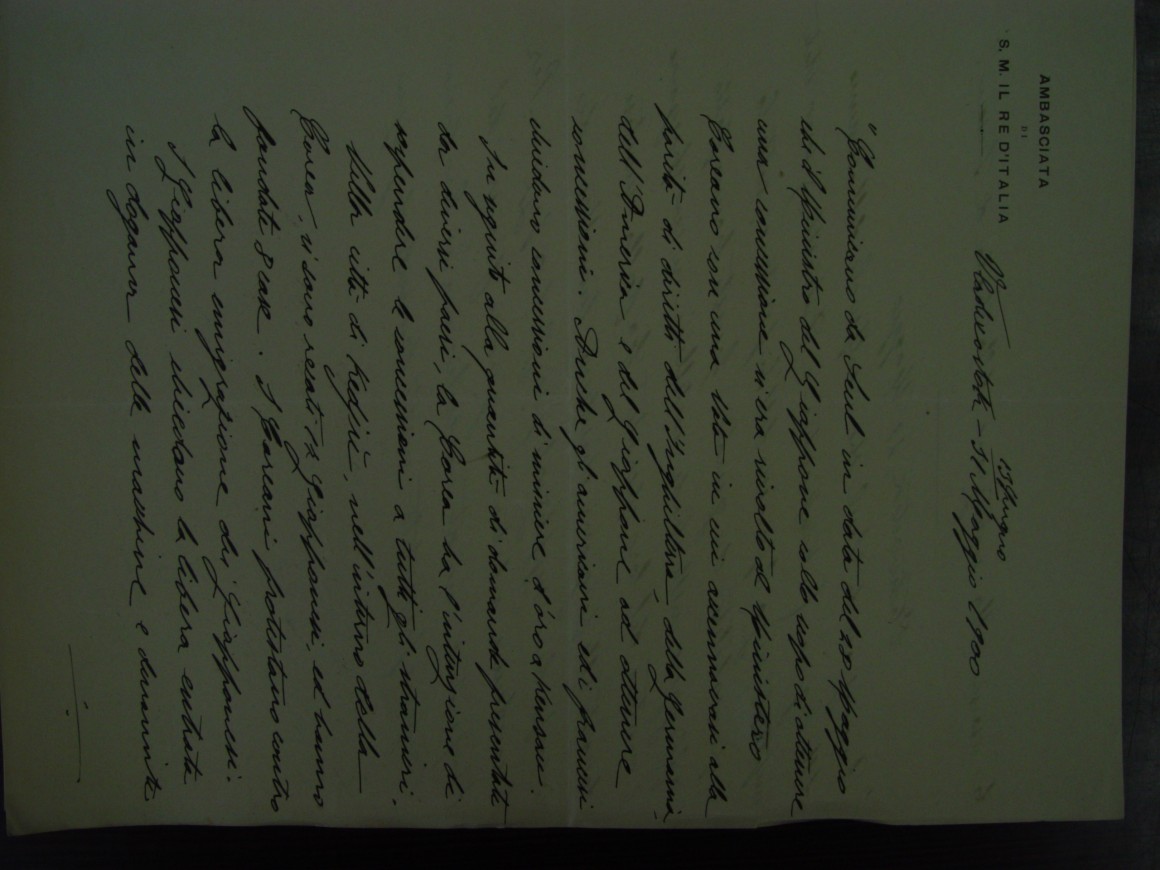 AMBASCIATA
DI
S. M. IL RE D'ITALIA
13 Giugno
Vladivostok - 31 Maggio 1900
"Comunicano da Seul in data del 20 Maggio
che il Ministro del Giappone collo scopo di ottenere
una concessione si era rivolto al Ministero
Coreano con una Nota in cui accennavasi alla
parità di diritti dell'Inghilterra, della Germania,
dell'America e del Giappone ad ottenere
concessioni. Anche gli americani ed i francesi
chiedono concessioni di miniere d'oro a Kensan.
In seguito alla quantità di domande presentate
da diversi paesi, la Corea ha l'intenzione di
sospendere le concessioni a tutti gli stranieri.
Nella città di, nell'interno della
Corea, si sono recati 12 Giapponesi, ed hanno
fondate 8 case. I Coreani protestano contro
la libera emigrazione dei Giapponesi.
I Giapponesi chiedono la libera entrata
in dogana delle macchine e